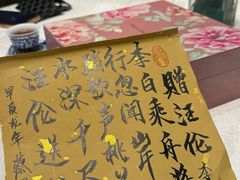 赠汪伦 李
李白乘舟将
行忽闻岸
踏歌声桃
水深千尺
汪伦送
甲辰龙年